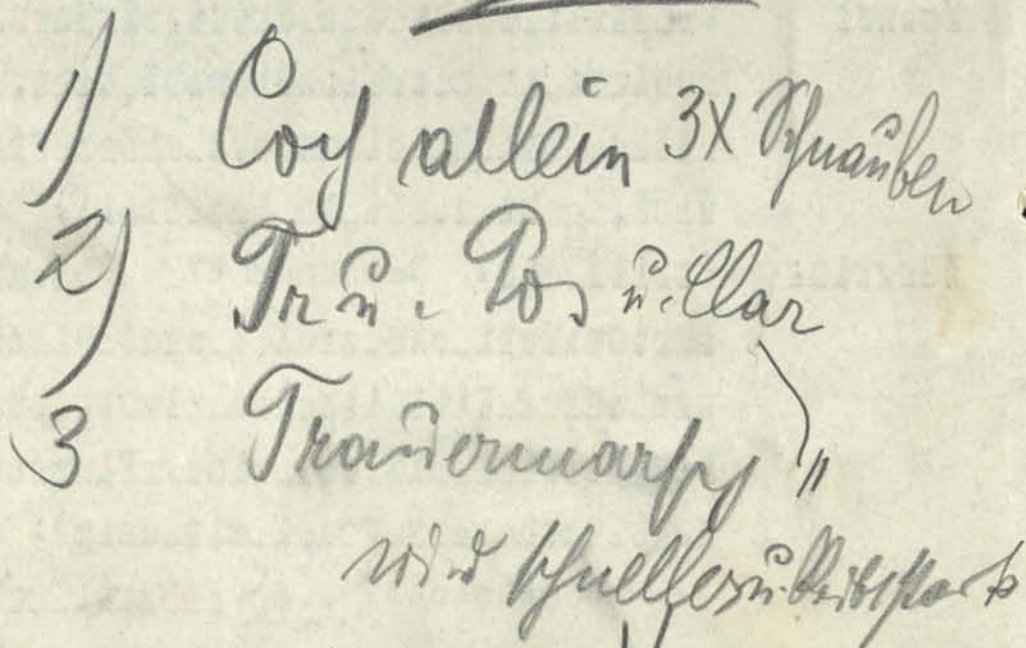 1) Coy allein 3X Schnauben
2) Tr u. Pos u. Clar
3 Trauermarsch "
wird schneller u. bleibt stark